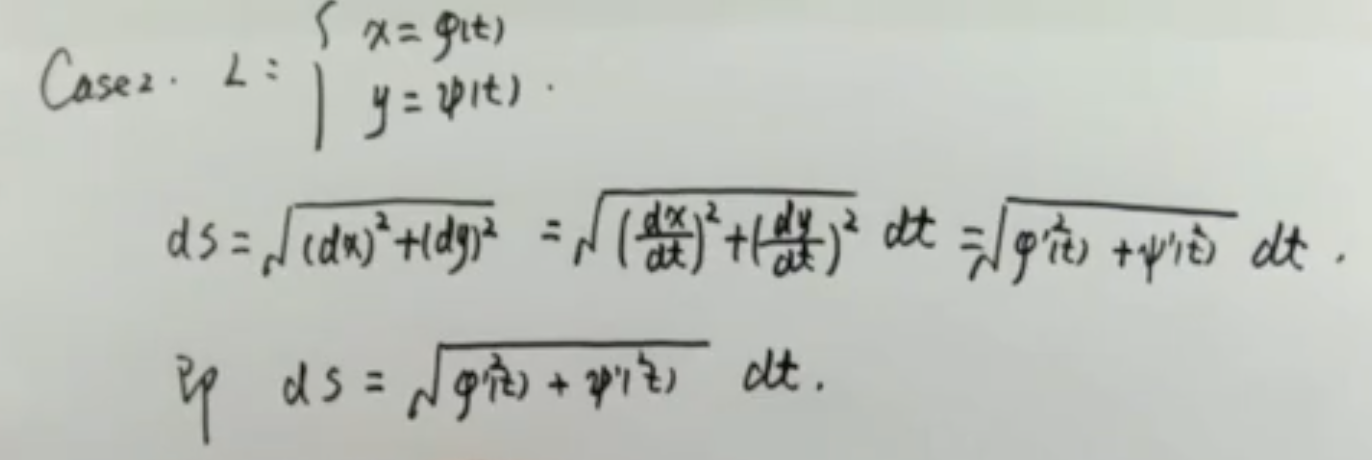 Case2. L: { x = φ(t)
y = ψ(t).
ds = √((dx)²+(dy)²) = √((dx/dt)²+(dy/dt)²) dt = √(φ'²(t) + ψ'²(t)) dt.
即 ds = √(φ'²(t) + ψ'²(t)) dt.